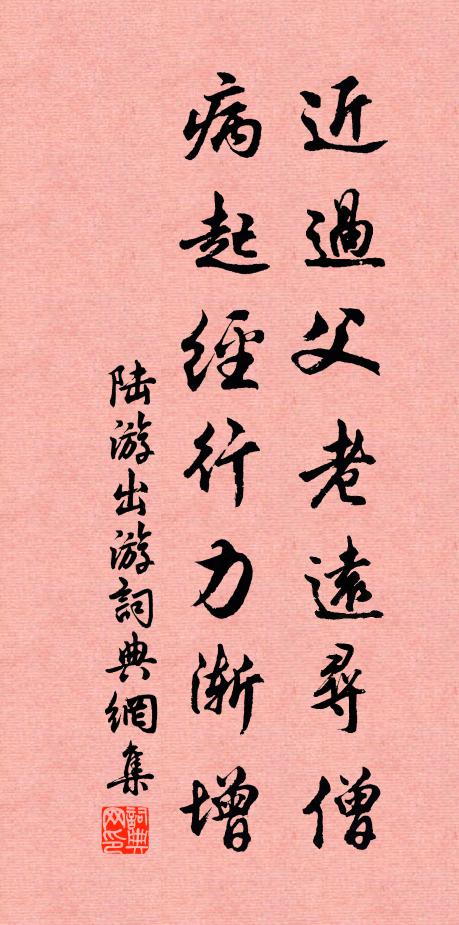 近過父老遠尋僧
病起經行力漸增
陆游出游詞典網集
詞典网印